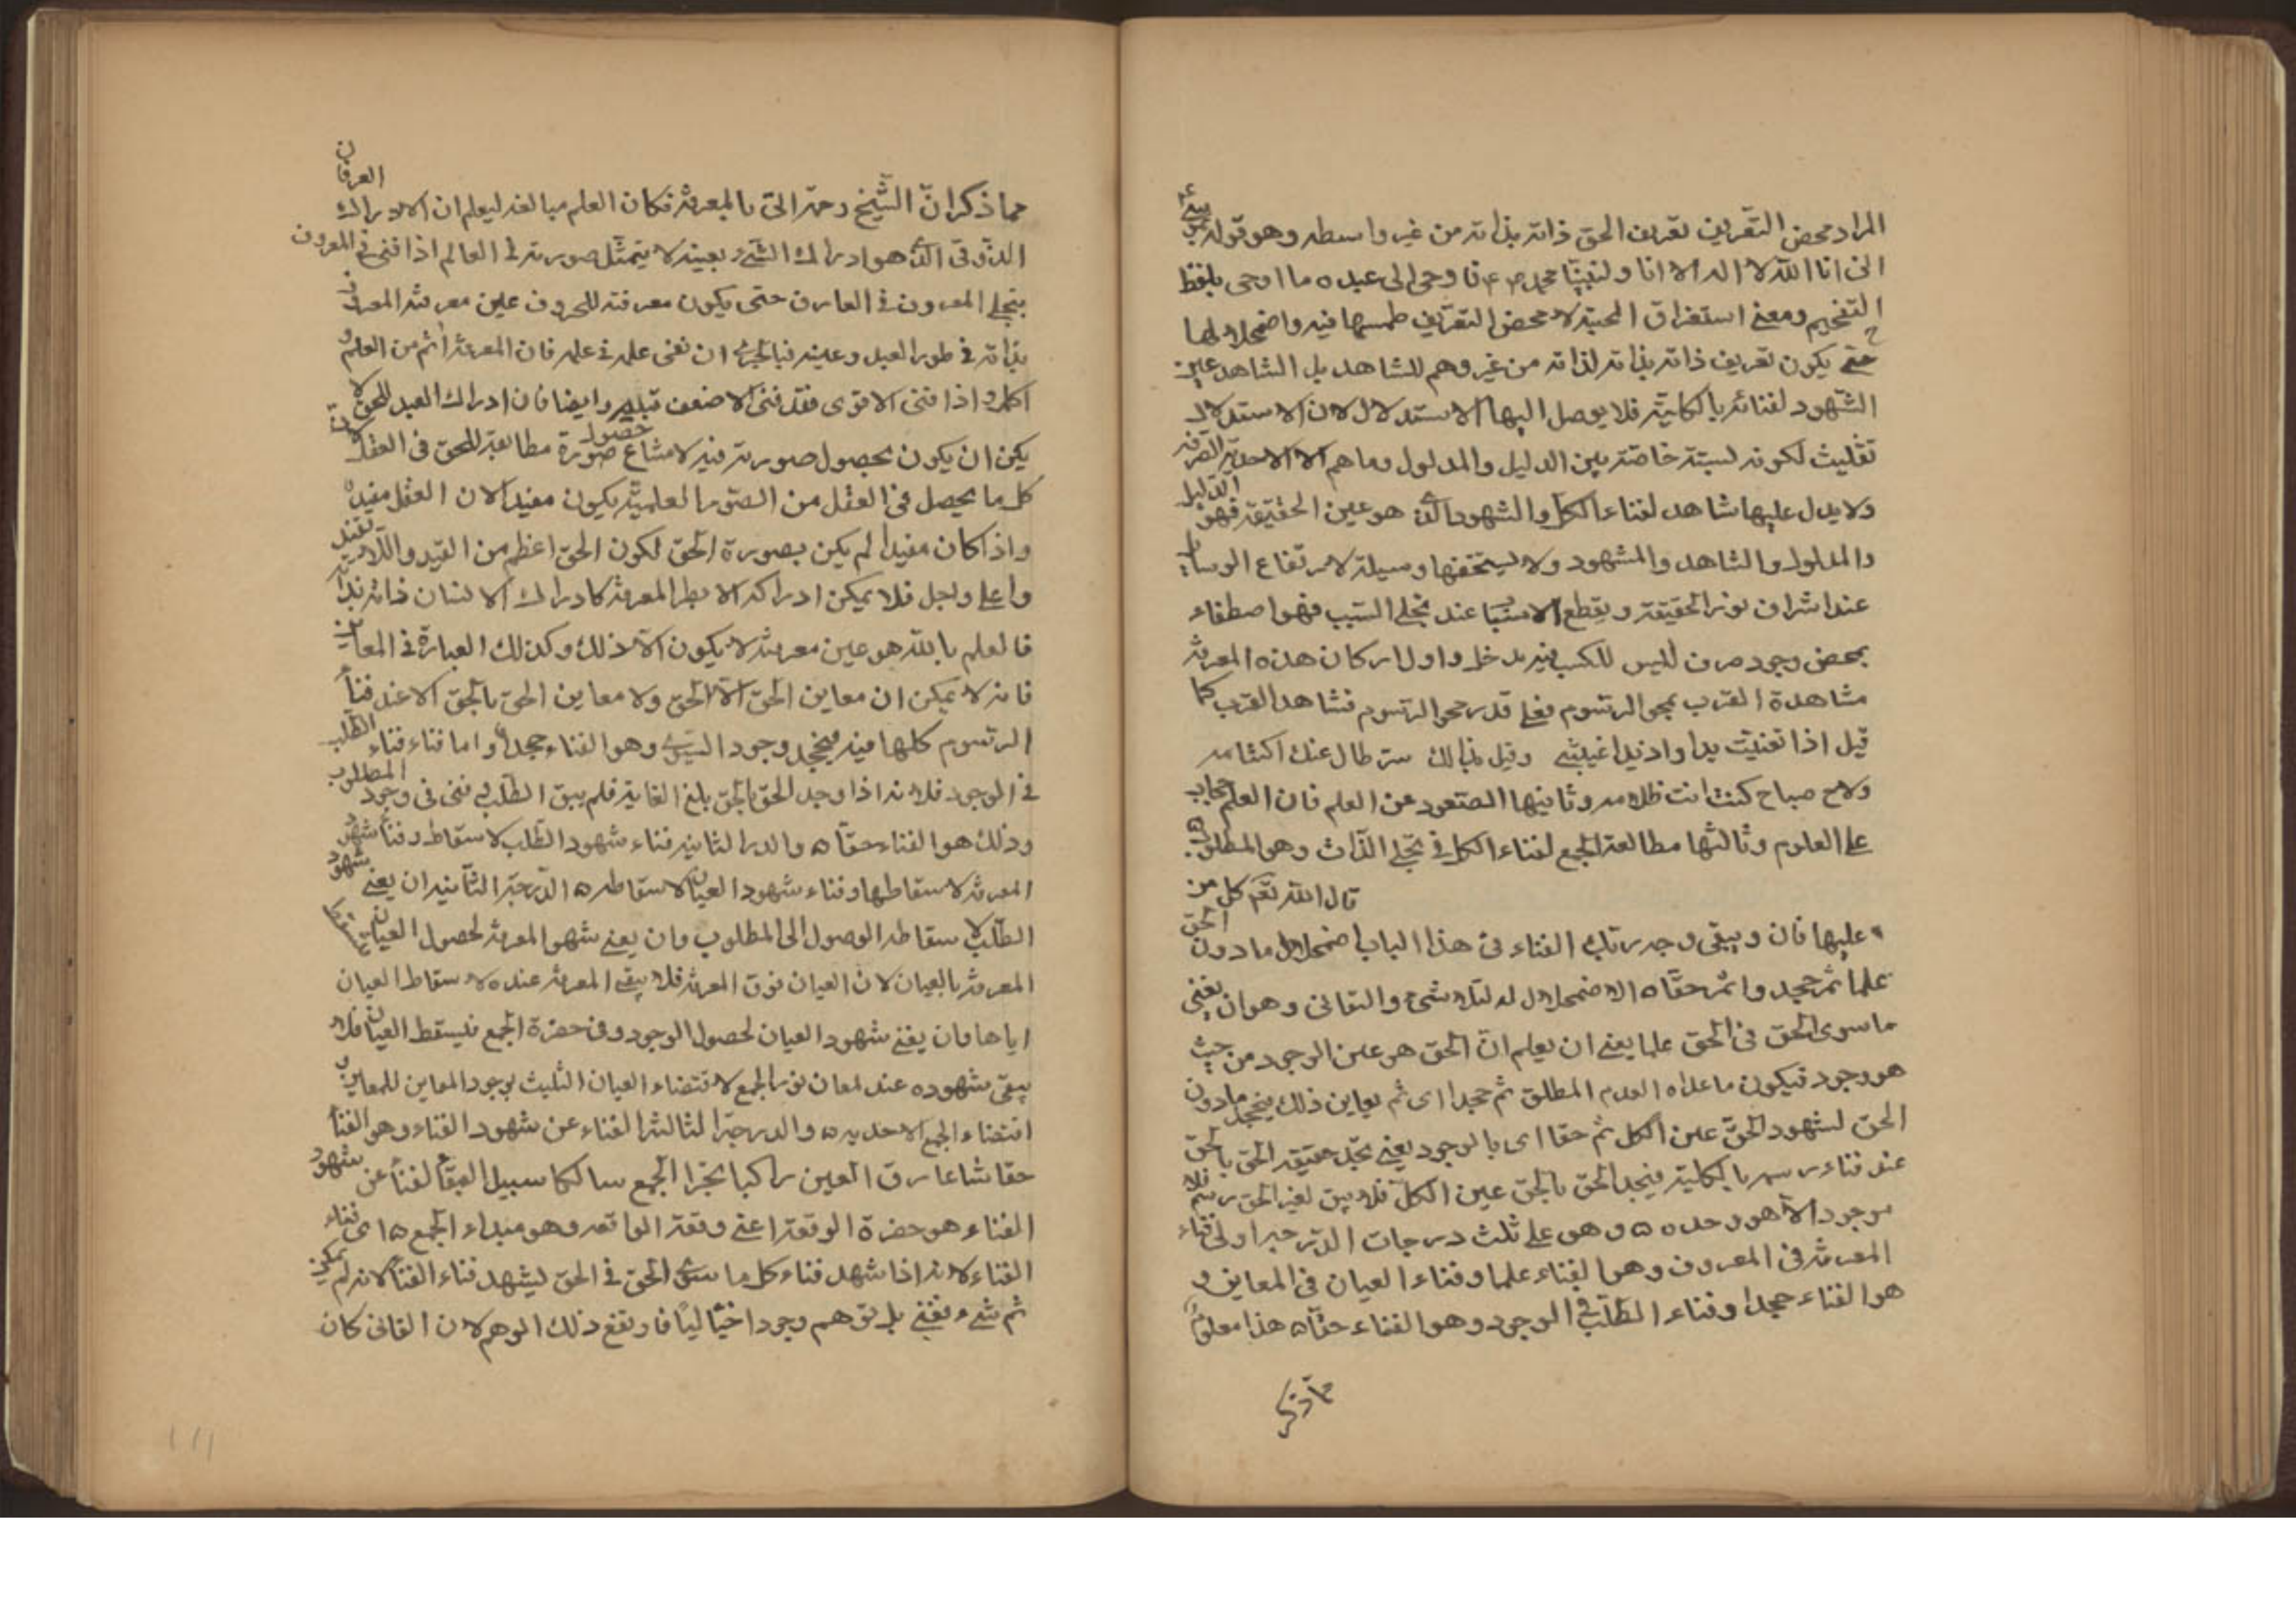 المراد محض التعريف تعريف الحق ذاته بذاته من غير واسطه وهو قوله
انى انا الله لا اله الا انا ولنبينا محمد فاوحى الى عبده ما اوحى بلفظ
التفخيم ومعنى استغراق المحبة لا محض التعريف طمسها فيه واضمحلالها
حتى يكون تعريف ذاته بذاته لذاته من غير وهم للشاهد بل الشاهد عين
الشهود لفنائه بالكلية فلا يوصل اليها الاستدلال لان الاستدلال
تثليث لكونه لسبتة خاصة بين الدليل والمدلول وما هم الا الاحدية الصرفة
ولا يدل عليها شاهد لفناء الكل والشهود الذى هو عين الحقيقة فهو الدليل
والمدلول والشاهد والمشهود ولا يستحقها وسيلة لارتفاع الوسايط
عند اشراق نور الحقيقة ويقطع الاسباب عند تجلى السبب فهو اصطفاء
بمحض وجود ليس للكسب فيه مدخل واول اركان هذه المعرفة
مشاهدة القرب بمحو الرسوم فعلى قدر محو الرسوم فشاهد القرب كما
قيل اذا تغيبت بدا وادا بدا غيبنى وقيل بدالك سر طال عنك اكتتامه
ولاح صباح كنت انت ظلامه وثانيها الصعود عن العلم فان العلم حجاب
على العلوم وثالثها مطالعة الجمع لفناء الكل فى تجلى الذات وهو المطلوب
قال الله تعم كل من
عليها فان ويبقى وجه ربك الفناء فى هذا الباب اضمحلال ما دون الحق
علما ثم حجدا ثم حقا ه الاضمحلال له لتلاشى والتفانى وهو ان يفنى
ما سوى الحق فى الحق علما يعنى ان يعلم ان الحق هو عين الوجود من حيث
هو وجود فيكون ما عداه العدم المطلق ثم حجدا اى ثم يعاين ذلك فيحجد ما دون
الحق لشهود الحق عين الكل ثم حقا اى بالوجود يعنى تجلى حقيقة الحق بالحق
عند فناء رسمه بالكلية فيجد الحق بالحق عين الكل فلا يبق لغير الحق رسم فلا
موجود الا هو وحده ه وهو على ثلث درجات الدرجة اولى فناء
المعرفة فى المعروف وهو الفناء علما وفناء العيان فى المعاين و
هو الفناء حجدا وفناء الطلب فى الوجود وهو الفناء حقا ه هذا معلوم
مما ذكر
مما ذكر ان الشيخ رحمه الى بالمعرفة فكان العلم مبالغه ليعلم ان الادراك العرفان
الذوقى الذى هو ادراك الشئ بعينه لا يتمثل صورته فى العالم اذا فنى فى المعروف
بتجلى المعروف فى العارف حتى يكون معرفته للمعروف عين معرفة المعروف
بذاته فى طور العبد وعينه فبالحرى ان تفنى علمه فى علمه فان المعرفة اتم من العلم و
اكمل واذا فنى الاقوى فقد فنى الاضعف قبله وايضا فان ادراك العبد للحق لا
يمكن ان يكون بحصول صورته فيه لامتناع حصول صورة مطابقة للحق فى العقل لان
كل ما يحصل فى العقل من الصور العلمية يكون مقيدا لان العقل مقيد
واذا كان مقيدا لم يكن بصورة الحق لكون الحق اعظم من القيد واللاتقيد
واعلى واجل فلا يمكن ادراكه الا بطور المعرفة كادراك الانسان ذاته بذاته
فالعلم بالله هو عين معرفته لا يكون الا ذلك وكذلك العبارة فى المعاين
فانه لا يمكن ان معاين الحق الا الحق ولا معاين الحق بالحق الا عند فناء
الرسوم كلها فيه فيحجد وجود السوى وهو الفناء حجدا واما فناء فناء الطلب
فى الوجود فلانه اذا وجد الحق بالحق بلغ الغاية فلم يبق الطلب فى فنى فى وجود المطلوب
وذلك هو الفناء حقا ه والدرجة الثانيه فناء شهود الطلب لاسقاطه وفناء شهود
المعرفة لاسقاطها وفناء شهود العيان لاسقاطه ه الدرجة الثانيه ان يفنى شهود
الطلب لاسقاطه الوصول الى المطلوب وان يفنى شهود المعرفة لحصول العيان فيسقط
المعرفة بالعيان لان العيان فوق المعرفة فلا يبقى المعرفة عنده لاسقاط العيان
اياها وان يفنى شهود العيان لحصول الوجود وفى حضرة الجمع فيسقط العيان فلا
يبقى شهوده عند لمعان نور الجمع لاقتضاء العيان التليث بوجود المعاين للمعاين و
اقتضاء الجمع الاحديه ه والدرجة الثالثة الفناء عن شهود الفناء وهو الفناء
حقا شاعا برق العين راكبا بحر الجمع سالكا سبيل البقاء لفناء عن شهود
الفناء هو حضرة الوقفة اعنى وقفة الواقفه وهو مبداء الجمع ه اى فناء
الفناء لانه اذا شهد فناء كل ما سوى الحق فى الحق ليشهد فناء الفناء لانه لم يكن
ثم شئ يفنى بل توهم وجودا خياليا فارتفع ذلك الوهم لان الفانى كان